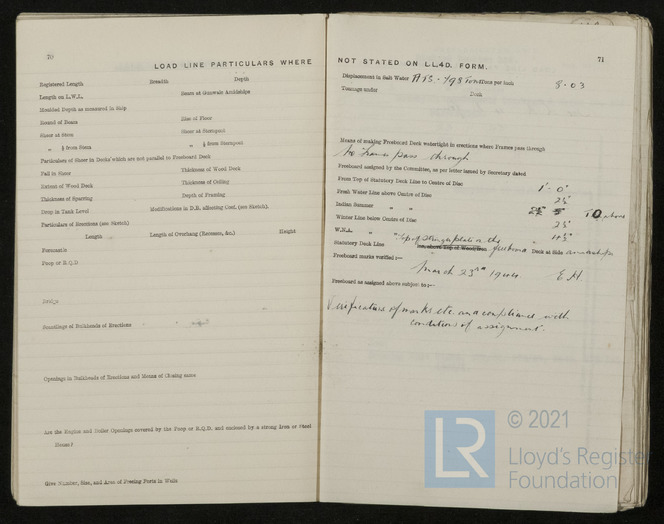 70
LOAD LINE PARTICULARS WHERE
Registered Length Breadth Depth
Length on L.W.L. Beam at Gunwale Amidships
Moulded Depth as measured in Ship
Round of Beam Rise of Floor
Sheer at Stem Sheer at Sternpost
„ ⅛ from Stem „ ⅛ from Sternpost
Particulars of Sheer in Decks which are not parallel to Freeboard Deck
Fall in Sheer Thickness of Wood Deck
Extent of Wood Deck Thickness of Ceiling
Thickness of Sparring Depth of Framing
Drop in Tank Level Modifications in D.B. affecting Coef. (see Sketch).
Particulars of Erections (see Sketch)
Length Length of Overhang (Recesses, &c.) Height
Forecastle
Poop or R.Q.D
Bridge
Scantlings of Bulkheads of Erections
Openings in Bulkheads of Erections and Means of Closing same
Are the Engine and Boiler Openings covered by the Poop or R.Q.D. and enclosed by a strong Iron or Steel
House?
Give Number, Size, and Area of Freeing Ports in Wells
71
NOT STATED ON LL4D. FORM.
Displacement in Salt Water 798 Tons Tons per Inch 8.03
Tonnage under Deck
Means of making Freeboard Deck watertight in erections where Frames pass through
No frames pass through
Freeboard assigned by the Committee, as per letter issued by Secretary dated
From Top of Statutory Deck Line to Centre of Disc 1' 0"
Fresh Water Line above Centre of Disc 2½
Indian Summer „ „
Winter Line below Centre of Disc 2½
W.N.A. „ „ 4½
Statutory Deck Line Top of stringer plate on the freeboard Deck at Side amidships
Freeboard marks verified :—
March 23rd 1944. E.H.
Freeboard as assigned above subject to :—
Verification of marks etc. and compliance with
conditions of assignment.
LR
© 2021
Lloyd's Register
Foundation